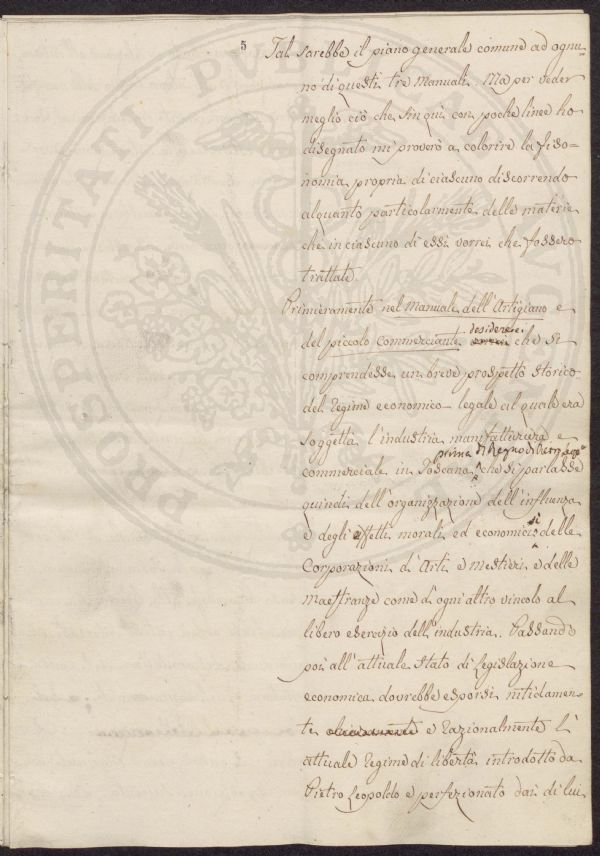 5
Tal sarebbe il piano generale comune ad ognu-
no di questi tre Manuali. Ma per veder
meglio ciò che sin quì con poche linee ho
disegnato mi proverò a colorire la fiso=
nomia propria di ciascuno discorrendo
alquanto particolarmente delle materie
che in ciascuno di essi vorrei che fossero
trattate.
Primieramente nel Manuale dell'Artigiano e
del piccolo Commerciante desidererei che si
comprendesse un breve prospetto storico
del Regime economico-legale al quale era
soggetta l'industria manifatturiera e
commerciale in Toscana prima di Regno di Pietro Leop.º che si parlasse
quindi dell'organizzazione dell'influenza
e degli effetti morali ed economici sì delle
Corporazioni d'Arti e Mestieri e delle
Maestranze come d'ogni altro vincolo al
libero esercizio dell'industria. Passando
poi all'attuale Stato di Legislazione
economica dovrebbe esporsi nitidamen-
te e razionalmente l'
attuale Regime di libertà introdotto da
Pietro Leopoldo e perfezionato dai di lui
PROSPERITATI PUBLICAE AUGENDAE